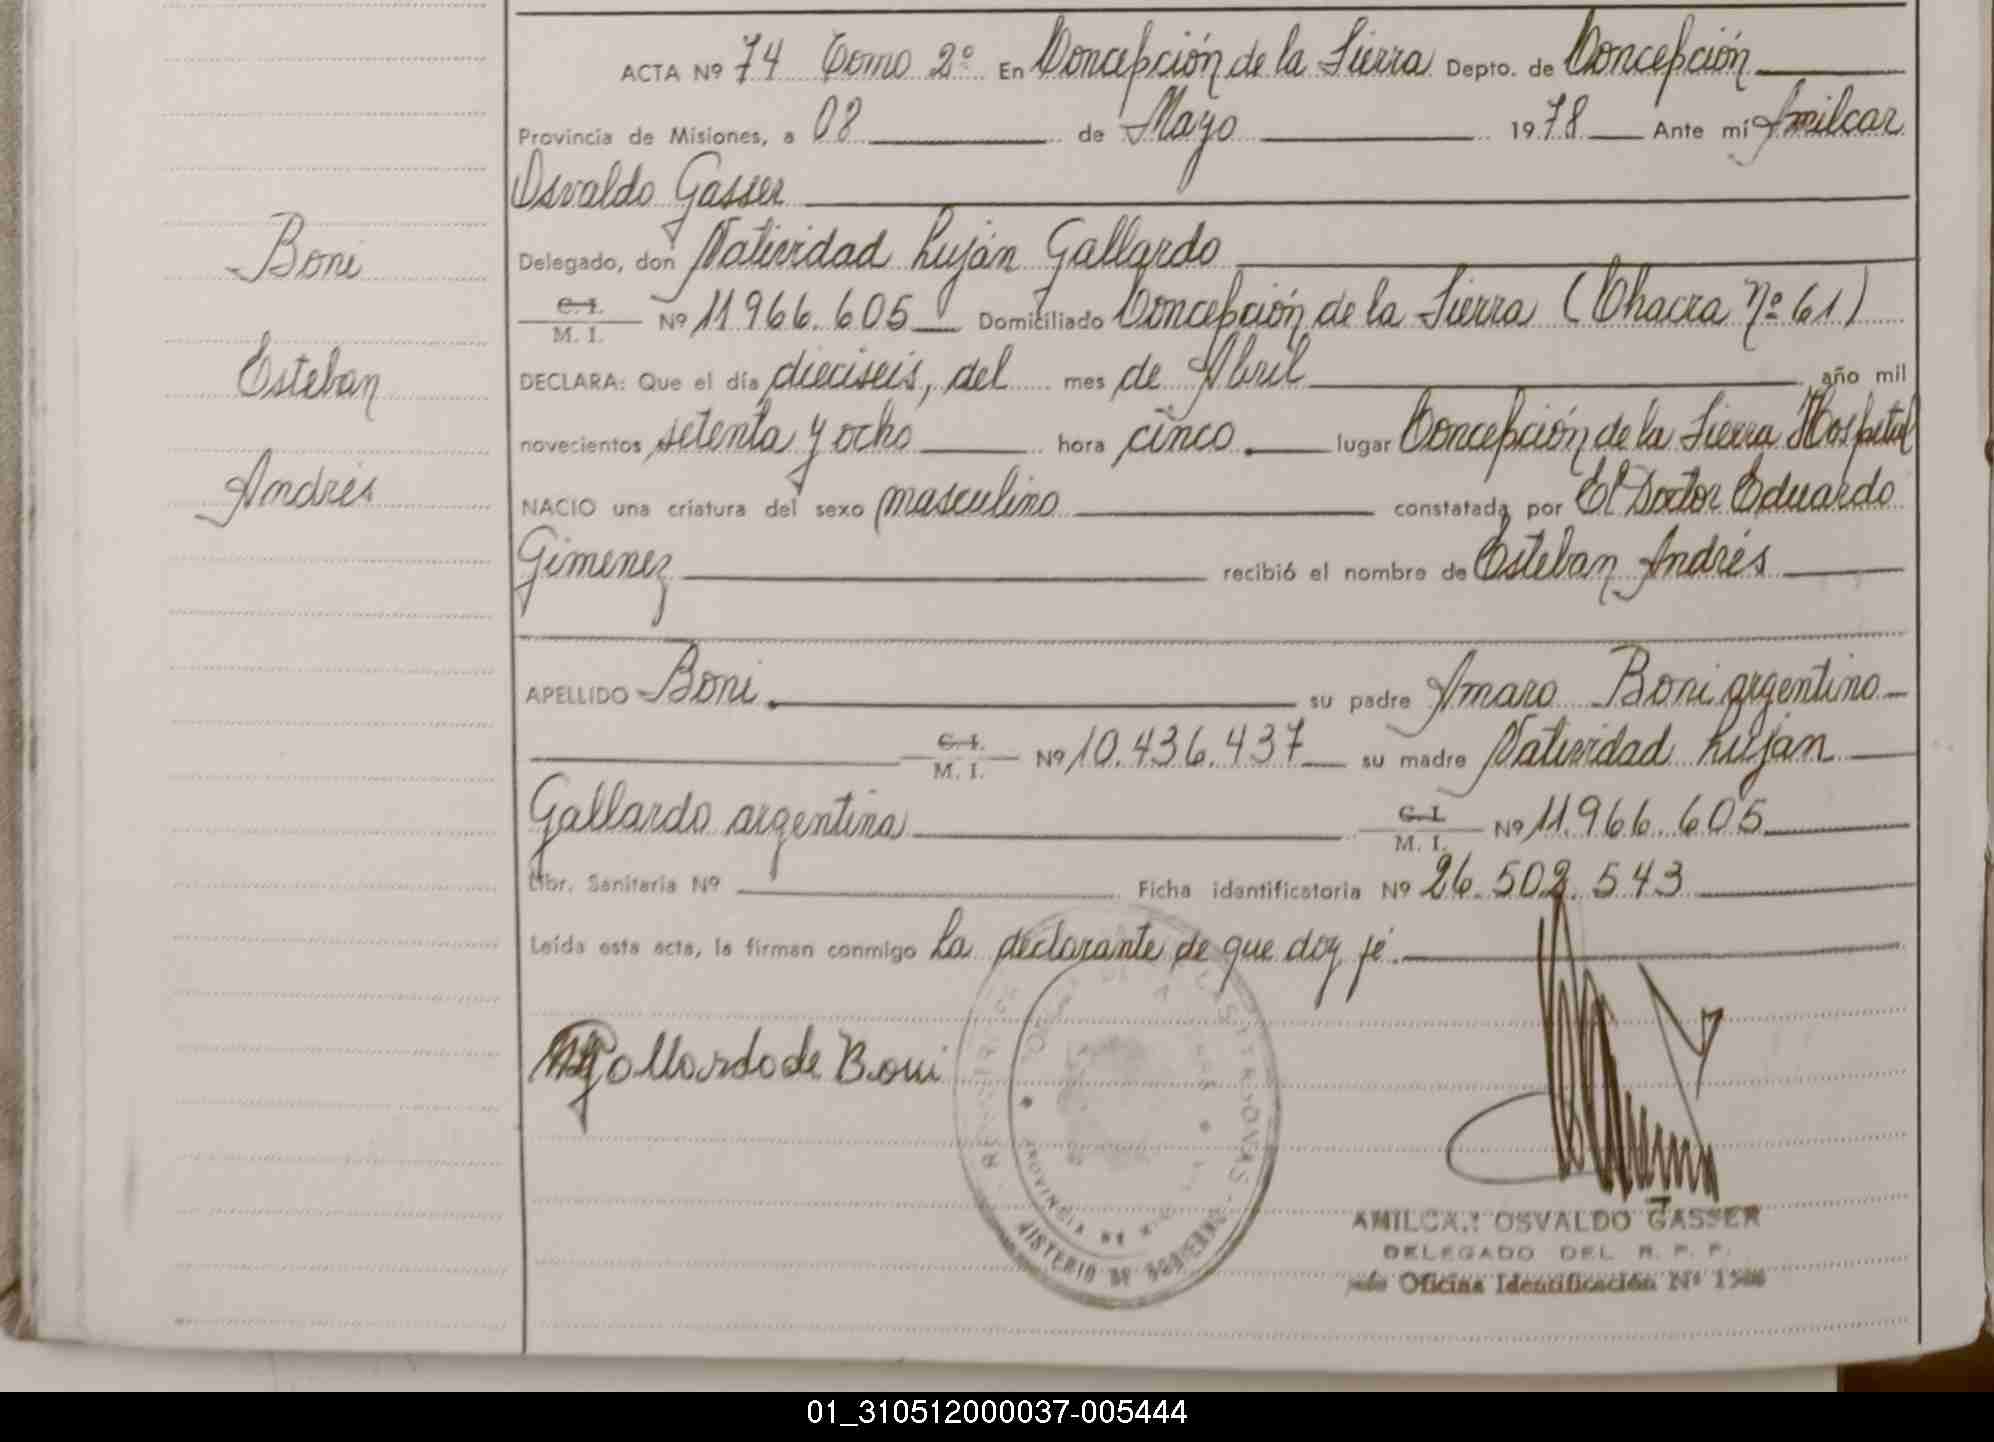 ACTA Nº 74 Tomo 2º En Concepción de la Sierra Depto. de Concepción
Provincia de Misiones, a 08 de Mayo 1978 Ante mí Amilcar
Osvaldo Gasser
Delegado, don Natividad Luján Gallardo
C. I.
M. I. Nº 11966.605 Domiciliado Concepción de la Sierra (Chacra Nº 61)
DECLARA: Que el día dieciseis, del mes de Abril año mil
novecientos setenta y ocho hora cinco. lugar Concepción de la Sierra Hospital
NACIO una criatura del sexo masculino constatada por El Doctor Eduardo
Gimenez recibió el nombre de Esteban Andrés
Boni
Esteban
Andrés
APELLIDO Boni. su padre Amaro Boni argentino
C. I.
M. I. Nº 10.436.437 su madre Natividad Luján
Gallardo argentina C. I.
M. I. Nº 11.966.605
Libr. Sanitaria Nº Ficha identificatoria Nº 26.502.543
Leída esta acta, la firman conmigo La declarante de que doy fé.
Gallardo de Boni
PROVINCIA DE
MISTERIO DE GOBIERNO
AMILCAR OSVALDO GASSER
DELEGADO DEL R. P. P.
Oficina Identificación Nº
01_310512000037-005444